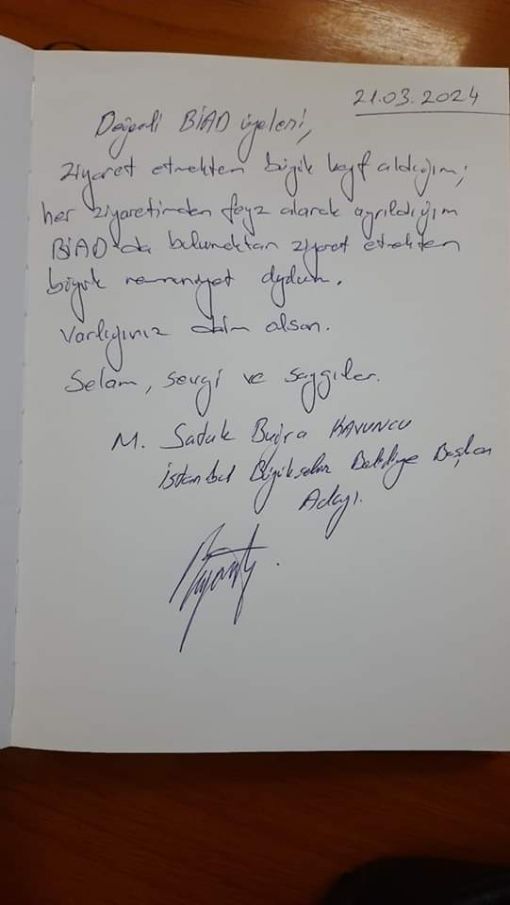 21.03.2024
Değerli BİAD üyeleri,
Ziyaret etmekten büyük keyf aldığım;
her ziyaretimden feyz alarak ayrıldığım
BİAD'da bulunmaktan ziyaret etmekten
büyük memnuniyet duydum.
Varlığınız daim olsun.
Selam, sevgi ve saygılar.
M. Satuk Buğra KAVUNCU
İstanbul Büyükşehir Belediye Başkan
Adayı.